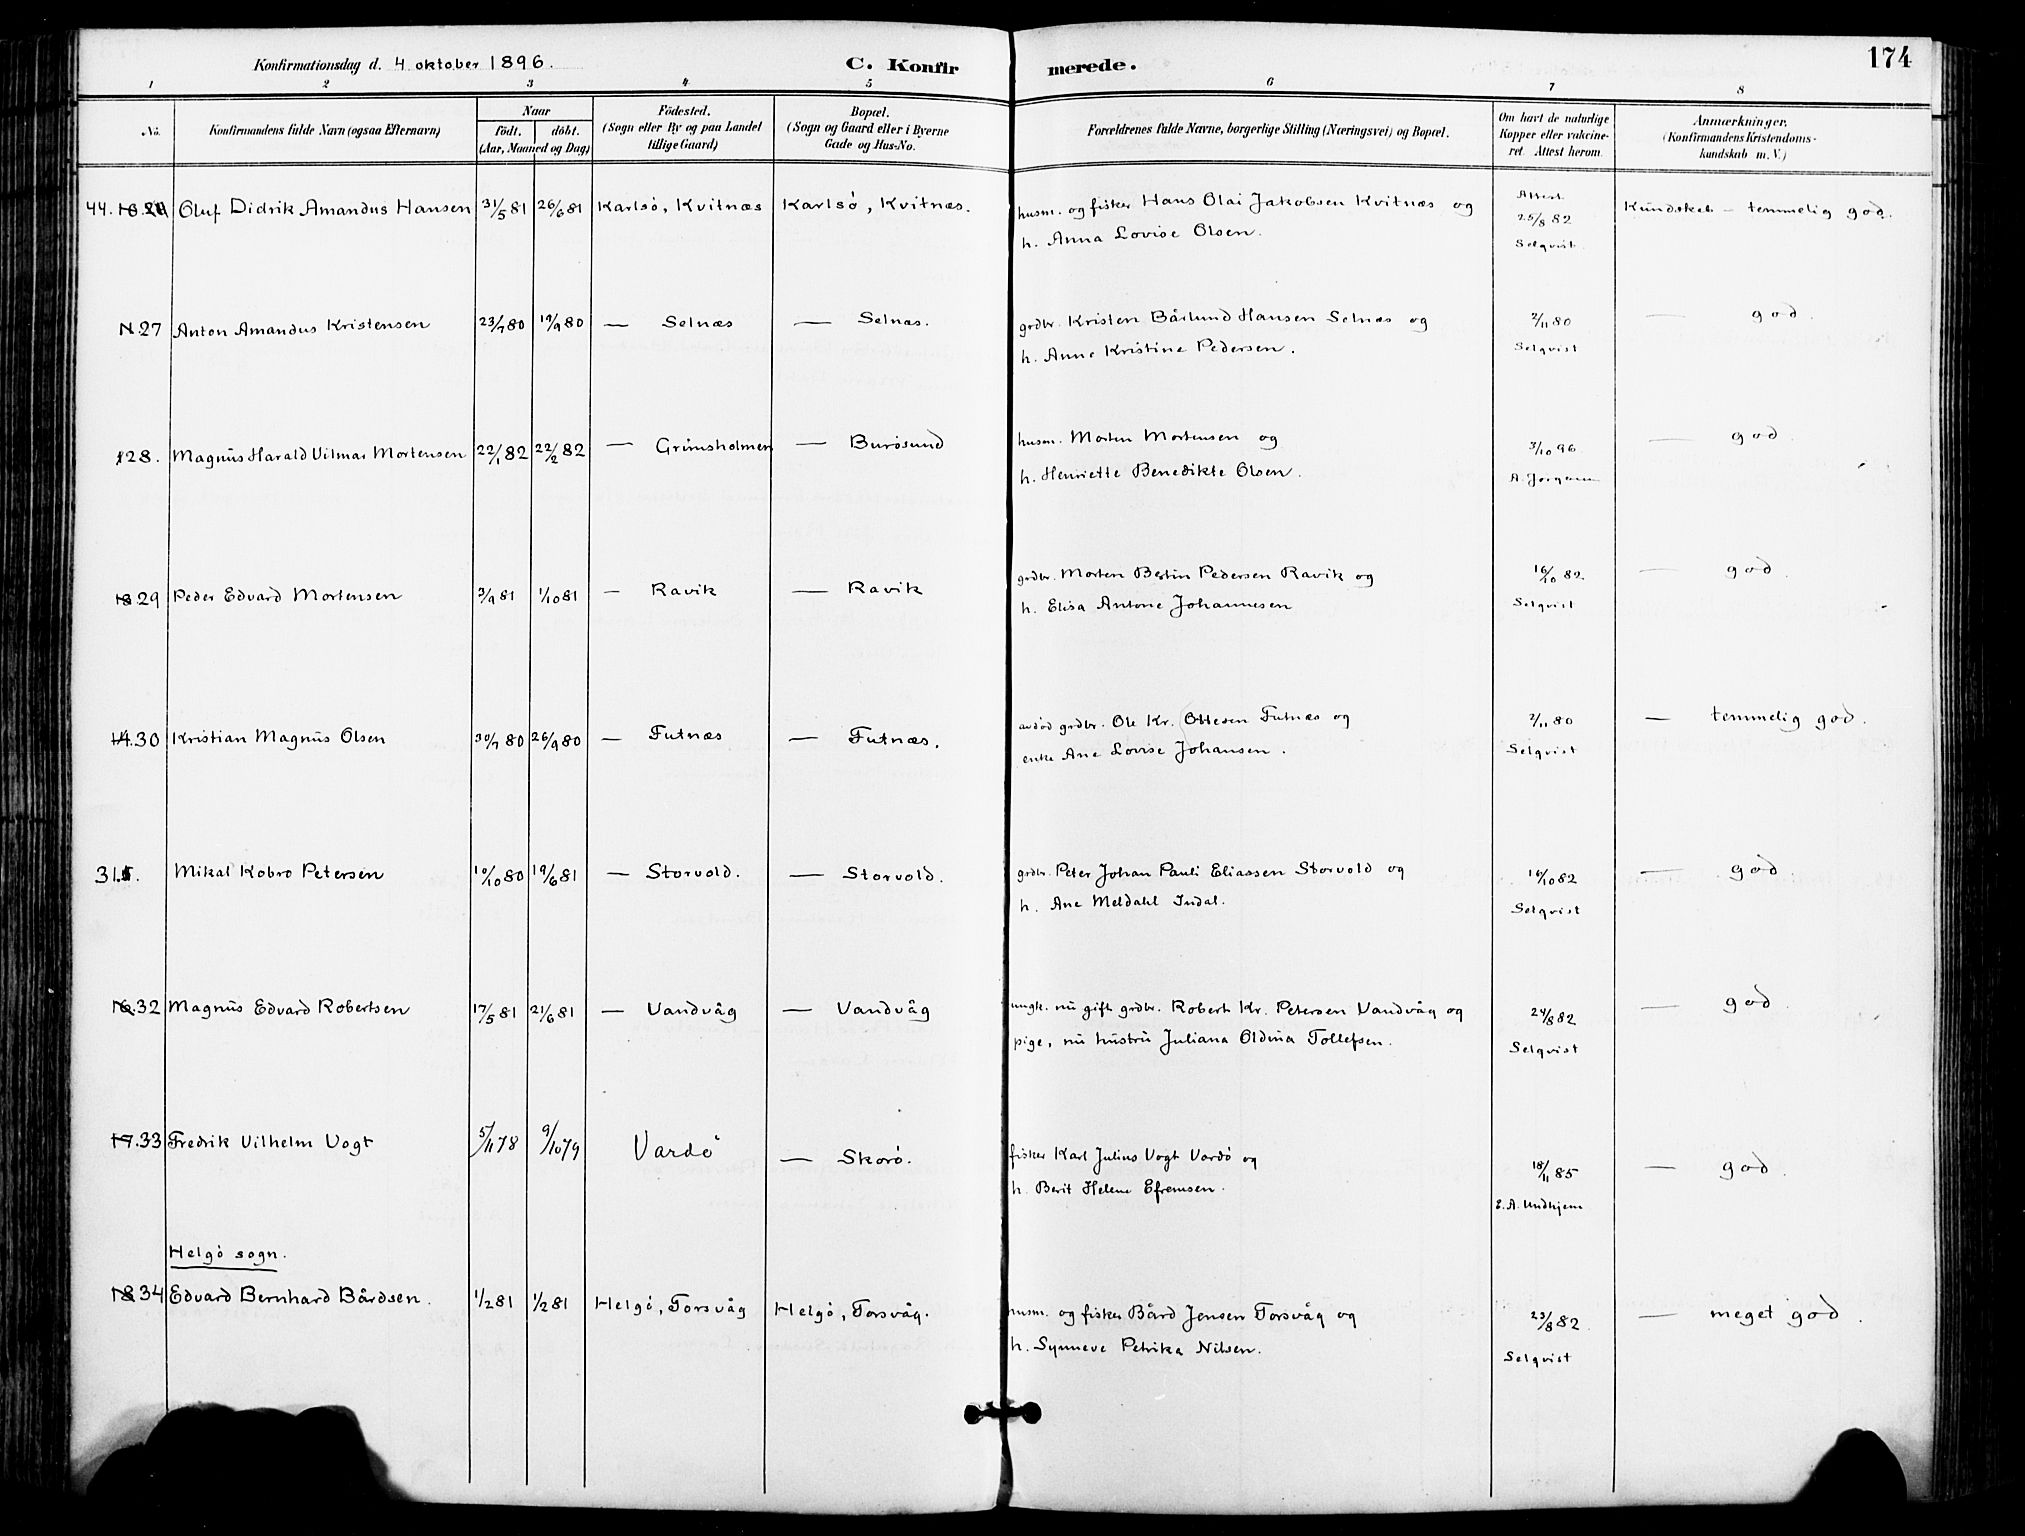 Konfirmationsdag d. 4 oktober 1896. C. Konfirmerede. 174
1 2 3 4 5 6 7 8
No.
Konfirmandens fulde Navn (ogsaa Efternavn)
Naar
födt. döbt.
(Aar, Maaned og Dag)
Födested.
(Sogn eller By og paa Landet
tillige Gaard)
Bopæl.
(Sogn og Gaard eller i Byerne
Gade og Hus-No.
Forældrenes fulde Navne, borgerlige Stilling (Næringsvei) og Bopæl.
Om havt de naturlige
Kopper eller vakcine-
ret. Attest herom.
Anmærkninger,
(Konfirmandens Kristendoms-
kundskab m. V.)
44. Oluf Didrik Amandus Hansen 31/5 81 26/6 81 Karlsö, Kvitnæs Karlsö, Kvitnæs. husm. og fisker Hans Olai Jakobsen Kvitnæs og Attest 25/8 82 Kundskab – temmelig god.
h. Anna Lovise Olsen. Selqvist.
27 Anton Amandus Kristensen 23/7 80 19/9 80 — Selnæs — Selnæs. grdbr. Kristen Bårlund Hansen Selnæs og 2/11 80 — god.
h. Anne Kristine Pedersen. Selqvist
28. Magnus Harald Vilmar Mortensen 22/1 82 22/2 82 — Grimsholmen — Burösund husm. Morten Mortensen og 3/10 96 — god.
h. Henriette Benedikte Olsen. A. Jorgensen
29 Peder Edvard Mortensen 3/9 81 1/10 81 — Ravik — Ravik grdbr. Morten Bertin Pedersen Ravik og 16/10 82 — god.
h. Elisa Antone Johannesen Selqvist
30 Kristian Magnus Olsen 30/7 80 26/9 80 — Futnæs — Futnæs. avdöd grdbr. Ole Kr. Ottesen Futnæs og 2/11 80 — temmelig god.
enke Ane Lovise Johansen. Selqvist
31. Mikal Kobro Petersen 10/10 80 19/6 81 — Storvold. — Storvold. grdbr. Peter Johan Pauli Eliassen Storvold og 16/10 82 — god.
h. Ane Meldahl Indal. Selqvist
32 Magnus Edvard Robertsen 17/5 81 21/6 81 — Vandvåg — Vandvåg ungk. nu gift grdbr. Robert Kr. Petersen Vandvåg og 24/8 82 — god.
pige, nu hustru Juliana Oldina Tollefsen. Selqvist
33 Fredrik Vilhelm Vogt 5/11 78 9/10 79 Vardö — Skorö. fisker Karl Julius Vogt Vardö og 18/11 85 — god.
h. Berit Helene Efremsen. E. A. Undhjem
Helgö sogn.
34 Edvard Bernhard Bårdsen. 1/2 81 1/2 81 Helgö, Torsvåg Helgö, Torsvåg. husm. og fisker Bård Jensen Torsvåg og 23/8 82. — meget god.
h. Synneve Petrika Nilsen. Selqvist